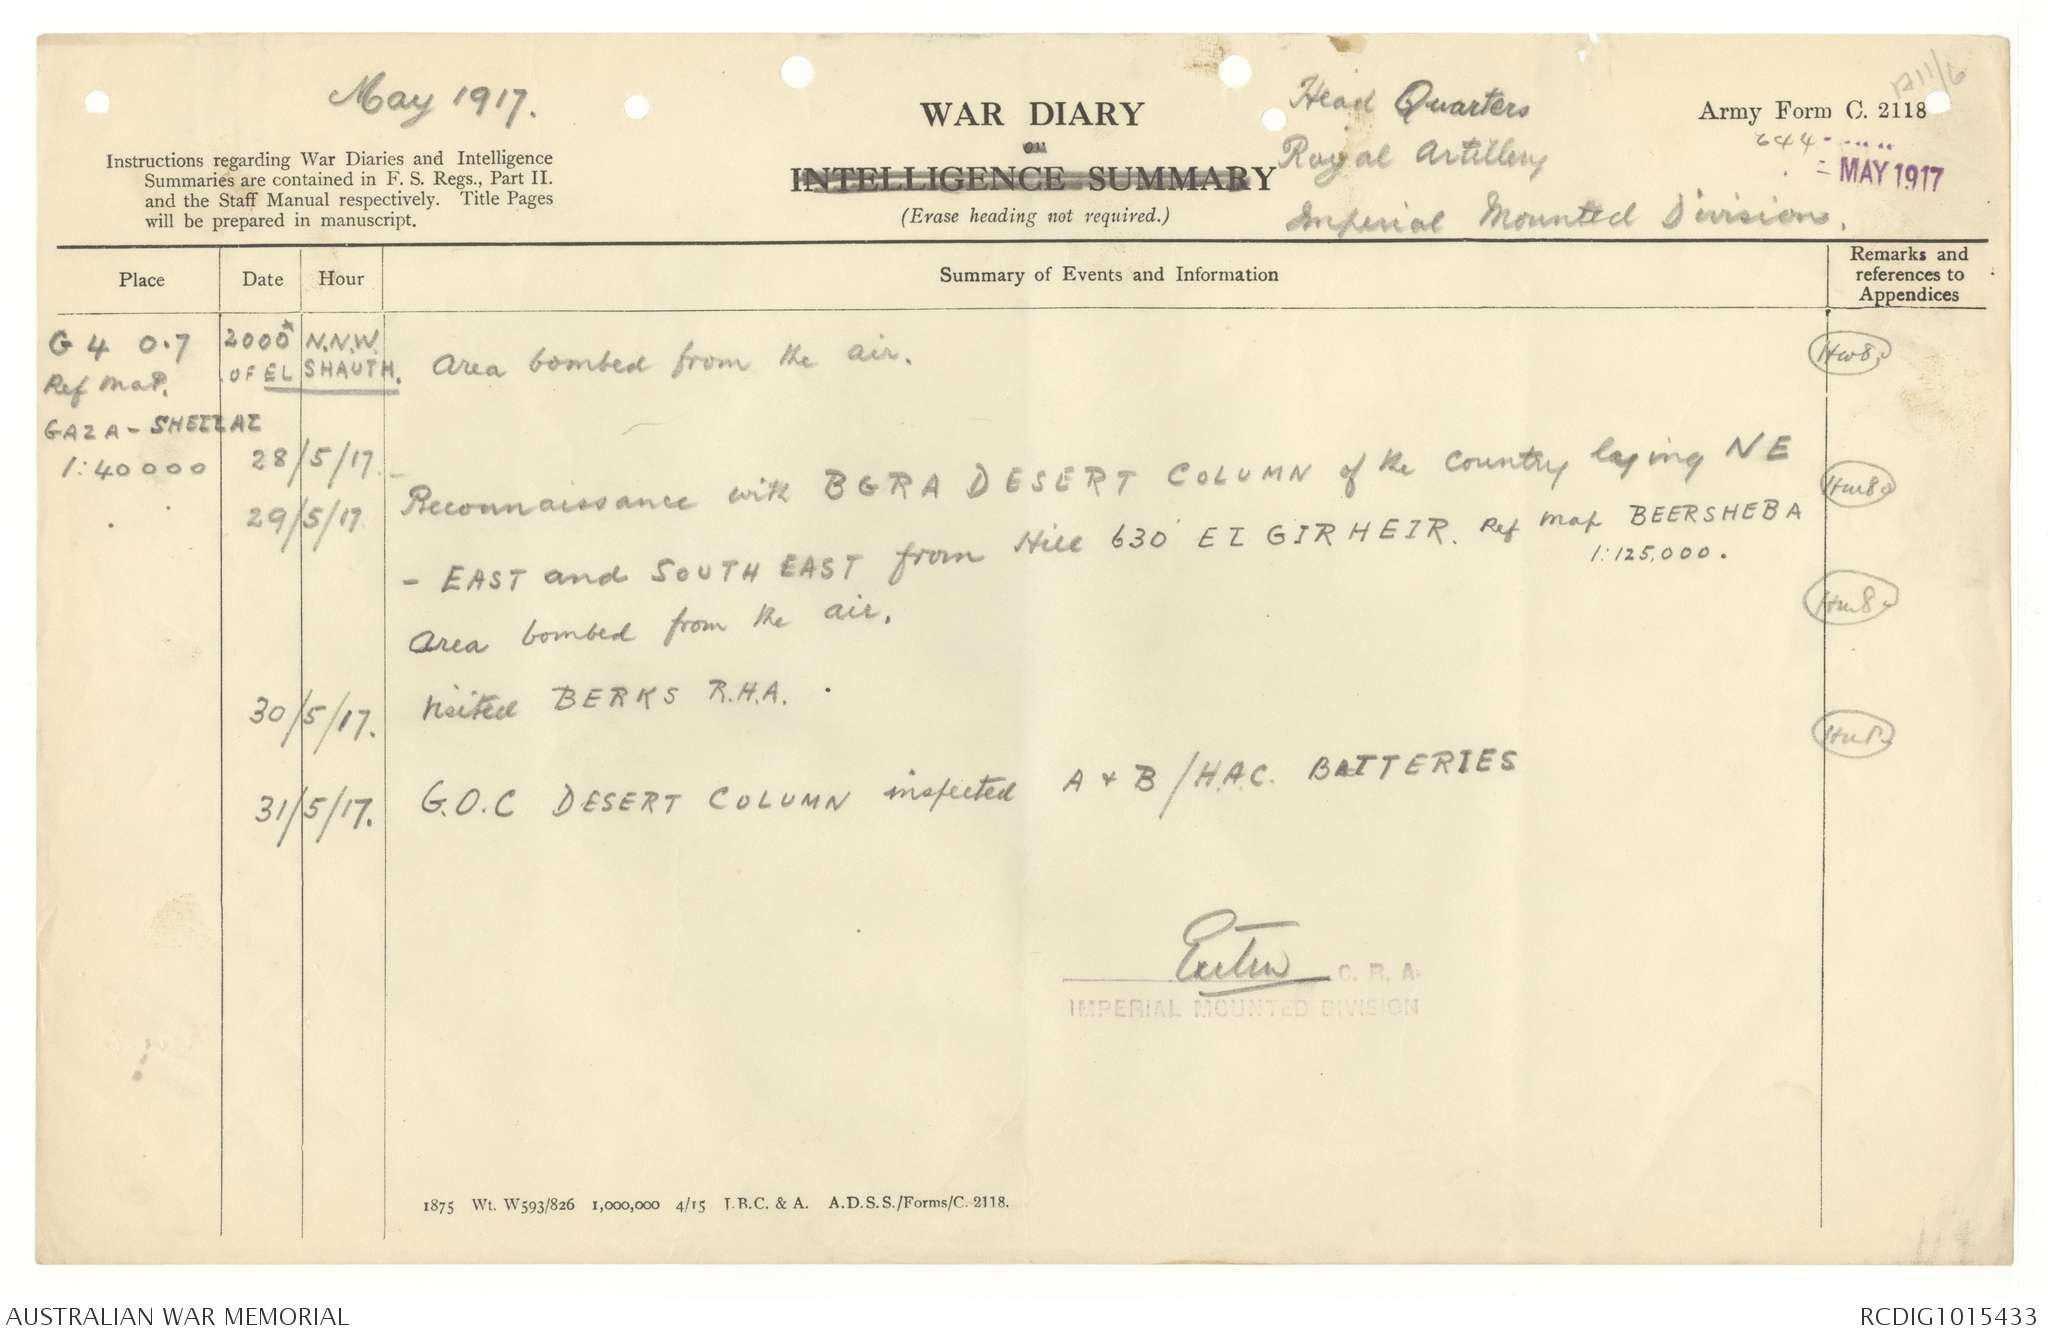 May 1917.
WAR DIARY
or
INTELLIGENCE SUMMARY
(Erase heading not required.)
Instructions regarding War Diaries and Intelligence
Summaries are contained in F. S. Regs., Part II.
and the Staff Manual respectively. Title Pages
will be prepared in manuscript.
Head Quarters
Royal Artillery
Imperial Mounted Division.
Army Form C. 2118
644
MAY 1917
Place
Date
Hour
Summary of Events and Information
Remarks and
references to
Appendices
G 4 0.7
Ref Map.
GAZA - SHELLAL
1:40000
2000x N.N.W.
OF EL SHAUTH.
Area bombed from the air.
28/5/17.
29/5/17
Reconnaissance with BGRA DESERT COLUMN of the country laying NE
- EAST and SOUTH EAST from Hill 630 El GIRHEIR. Ref Map BEERSHEBA
1:125,000.
Area bombed from the air.
30/5/17.
Visited BERKS R.H.A.
31/5/17.
G.O.C DESERT COLUMN inspected A & B/H.A.C. BATTERIES
C. R. A.
IMPERIAL MOUNTED DIVISION
1875 Wt. W593/826 1,000,000 4/15 J.B.C. & A. A.D.S.S./Forms/C. 2118.
AUSTRALIAN WAR MEMORIAL
RCDIG1015433